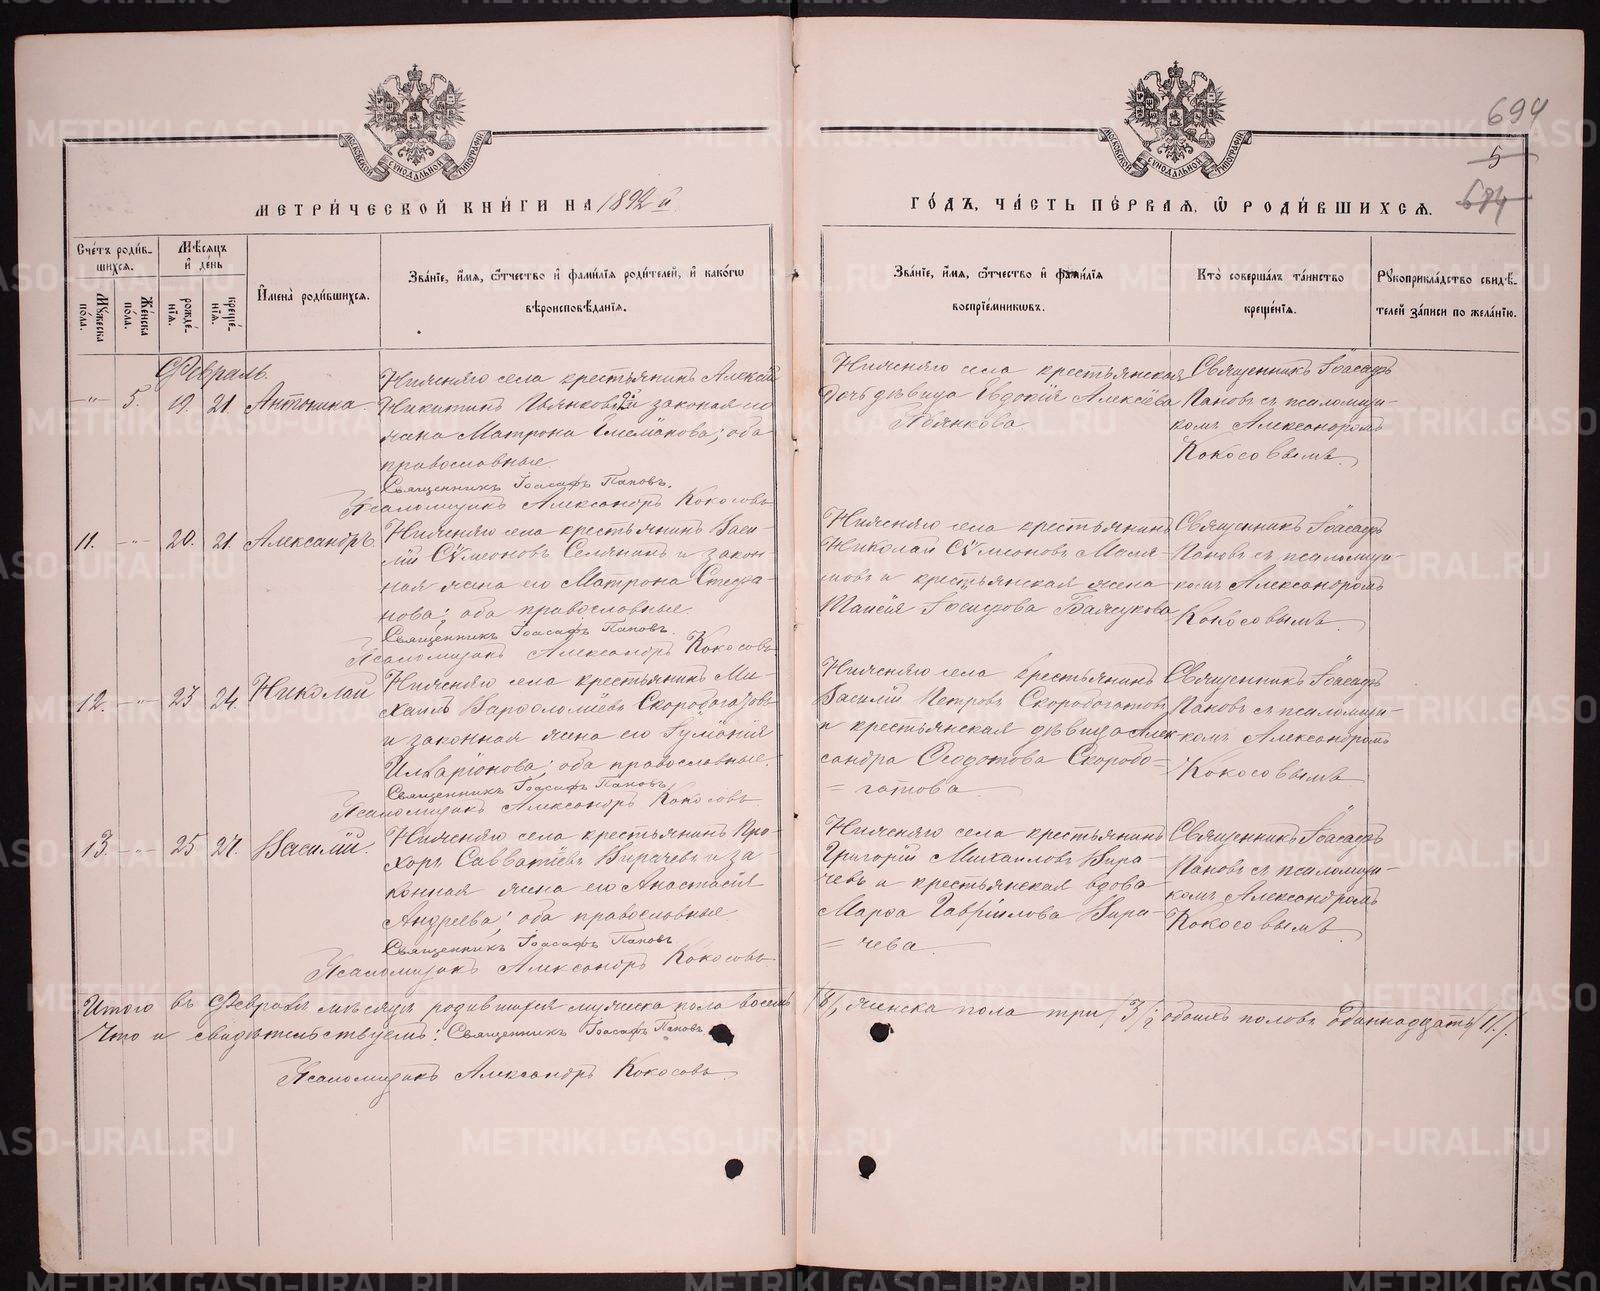 694
5
674
МОСКОВСКОЙ СѴНОДАЛЬНОЙ ТИПОГРАФІИ
МОСКОВСКОЙ СѴНОДАЛЬНОЙ ТИПОГРАФІИ
МЕТРИ́ЧЕСКОЙ КНИ́ГИ НА 1892 й
ГО́ДЪ, ЧА́СТЬ ПЕ́РВАЯ, Ѡ РОДИ́ВШИХСЯ.
Сче́тъ роди́в-
шихся.
Мѣ́сяцъ
и҆ де́нь
Мꙋ́жеска по́ла.
Же́нска по́ла.
рожде́-
нїя.
креще́-
нїя.
И҆мена̀ роди́вшихся.
Зва́нїе, и҆́мя, ѻ҆́тчество и҆ фами́лїя роди́телей, и҆ како́гѡ
вѣроисповѣ́данїя.
Зва́нїе, и҆́мя, ѻ҆́тчество и҆ фами́лїя
воспрїе́мникѡвъ.
Кто̀ соверша́лъ та́инство
креще́нїя.
Рꙋкоприкла́дство свидѣ́-
телей за́писи по жела́нїю.
Февраль.
-"- 5. 19. 21. Антонина.
Нижняго села крестьянинъ Алексій
Никитинъ и законная его
жена Матрона оба
православные.
Священникъ Іоасафъ Пановъ.
Псаломщикъ Александръ Кокосовъ
Нижняго села крестьянская
дочь дѣвица Евдокія Алексѣева
Священникъ Іоасафъ
Пановъ съ псаломщи-
комъ Александромъ
Кокосовымъ.
11. -"- 20. 21. Александръ.
Нижняго села крестьянинъ Васи-
лій Сѵмеоновъ Селянинъ и закон-
ная жена его Матрона Стефа-
нова; оба православные.
Священникъ Іоасафъ Пановъ.
Псаломщикъ Александръ Кокосовъ.
Нижняго села крестьянинъ
Николай Сѵмеоновъ
и крестьянская жена
Таисія Іосифова
Священникъ Іоасафъ
Пановъ съ псаломщи-
комъ Александромъ
Кокосовымъ.
12. -"- 23 24. Николай
Нижняго села крестьянинъ Ми-
хаилъ Варфоломіевъ Скоробогатовъ
и законная жена его
Иларіонова; оба православные.
Священникъ Іоасафъ Пановъ
Псаломщикъ Александръ Кокосовъ.
Нижняго села крестьянинъ
Василій Петровъ Скоробогатовъ
и крестьянская дѣвица Алек
сандра Ѳеодотова Скоробо=
=гатова.
Священникъ Іоасафъ
Пановъ съ псаломщи-
комъ Александромъ
Кокосовымъ
13. -"- 25 27. Василій.
Нижняго села крестьянинъ Про-
хоръ Савватіевъ Вирачевъ и за-
конная жена его Анастасія
Андреева; оба православные
Священникъ Іоасафъ Пановъ
Псаломщикъ Александръ Кокосовъ
Нижняго села крестьянинъ
Григорій Михаиловъ Вира-
чевъ и крестьянская вдова
Марѳа Гавріилова Вира-
=чева.
Священникъ Іоасафъ
Пановъ съ псаломщи-
комъ Александромъ
Кокосовымъ
Итого въ Февралѣ мѣсяцѣ родившихся мужеска пола восемь /8/, женска пола три /3/; обоихъ половъ одиннадцать /11/.
Что и свидѣтельствуемъ: Священникъ Іоасафъ Пановъ
Псаломщикъ Александръ Кокосовъ.
METRIKI.GASO-URAL.RU